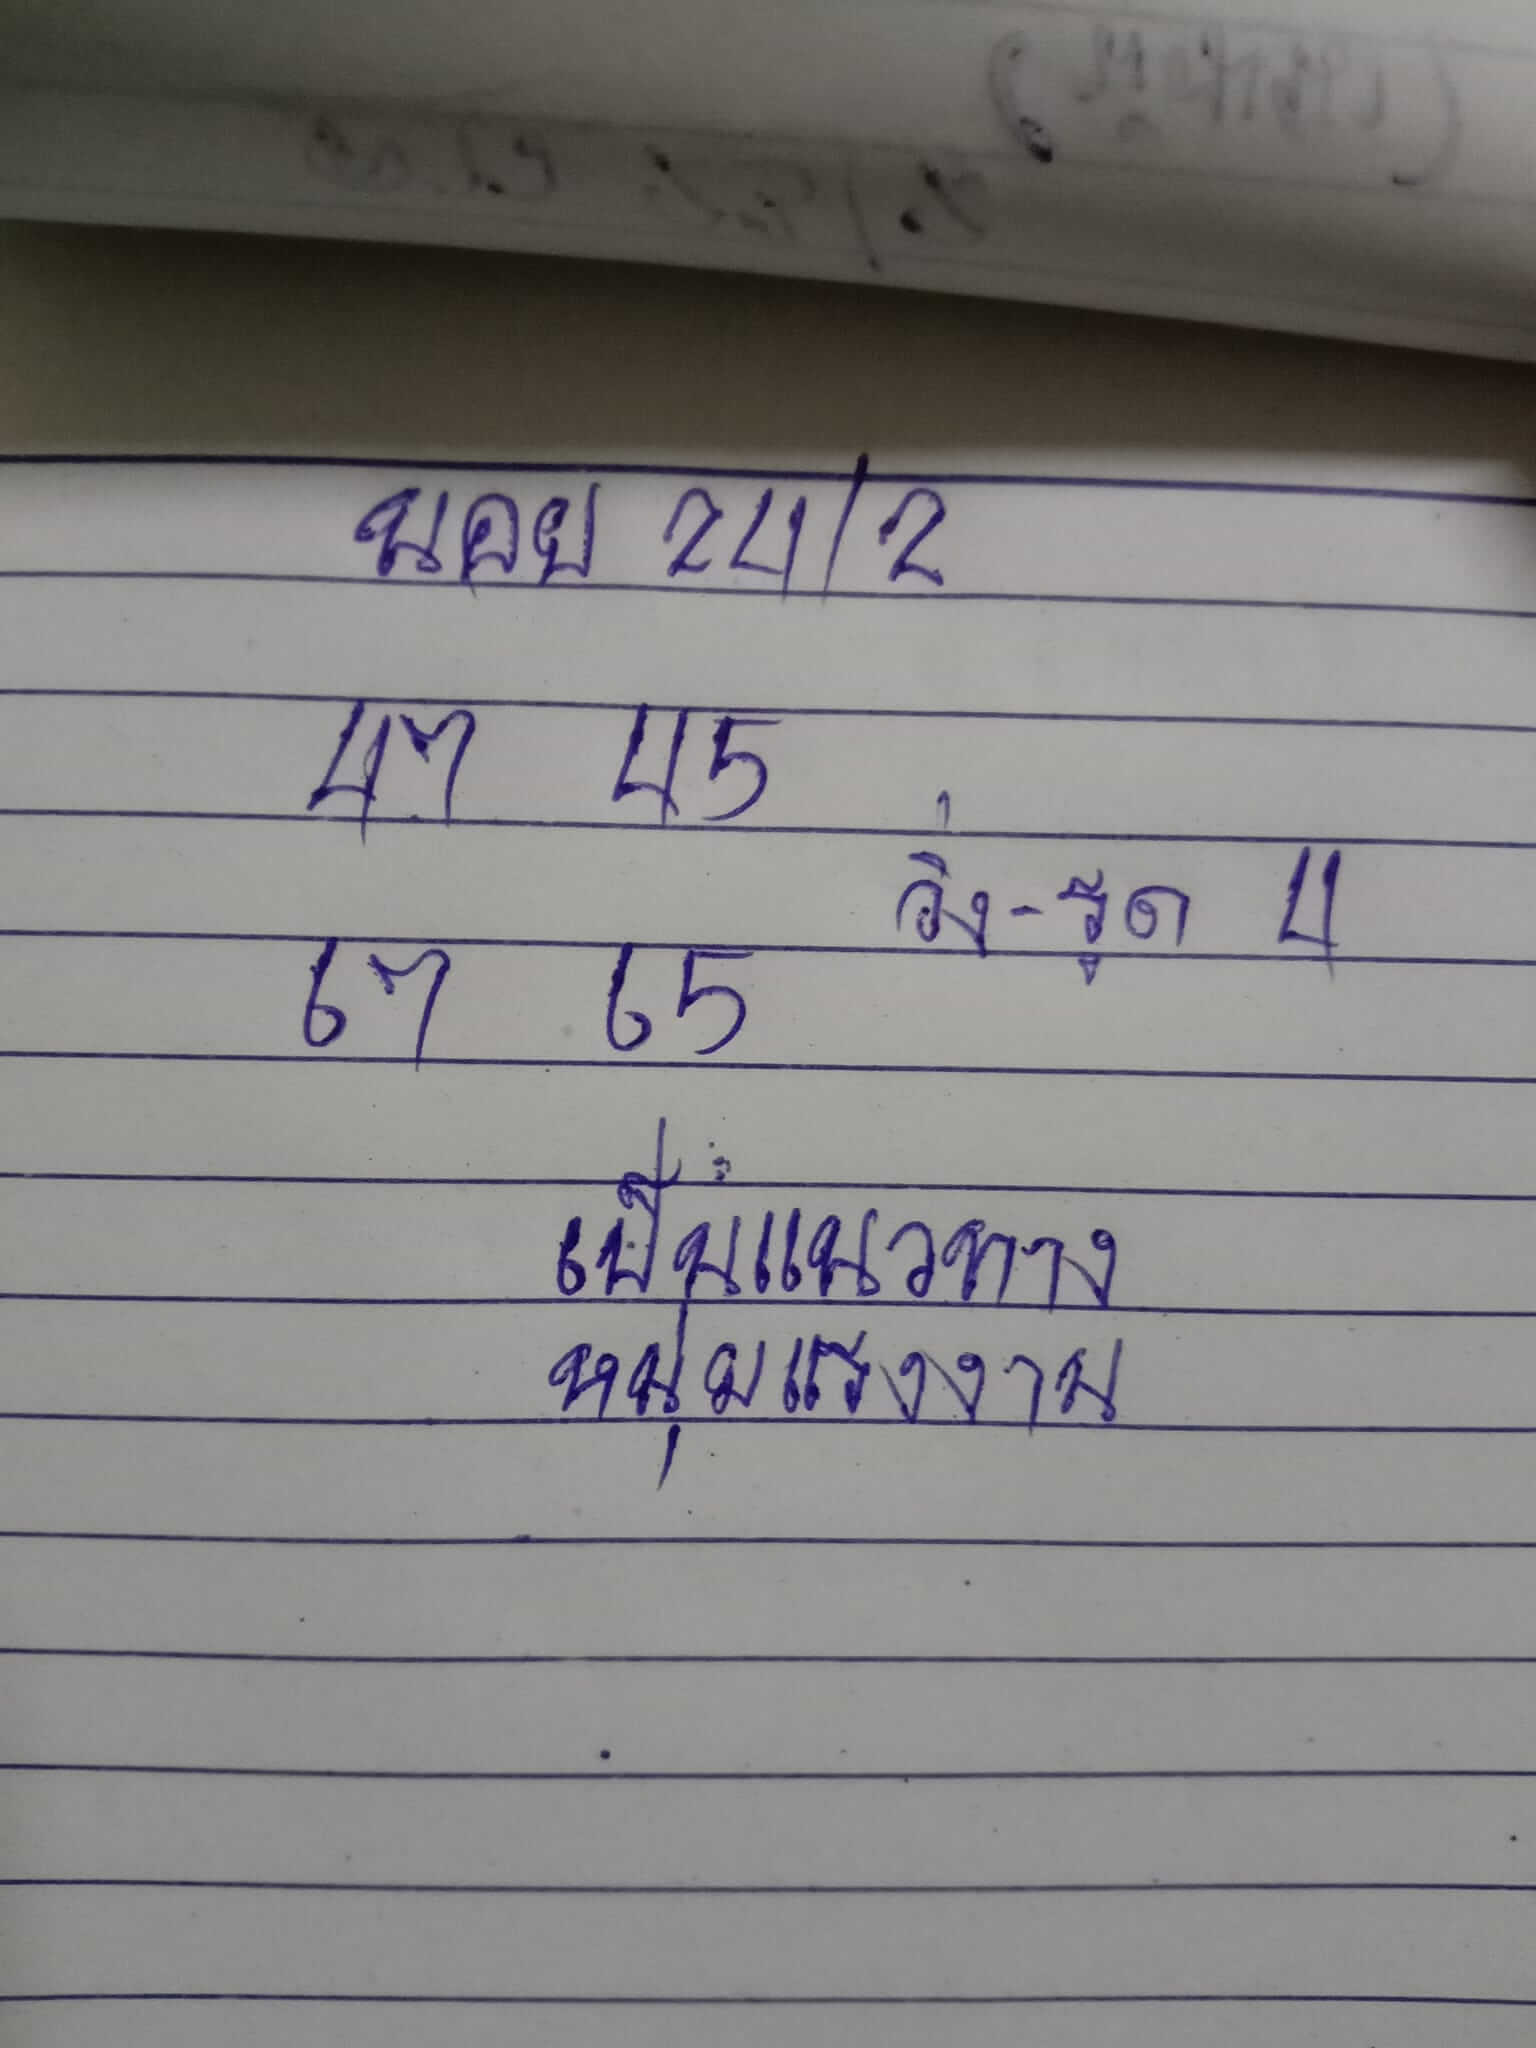 นอย 24/2
47 45
วิ่ง-รูด 4
67 65
เป็นแนวทาง
หนุ่มแรงงาน